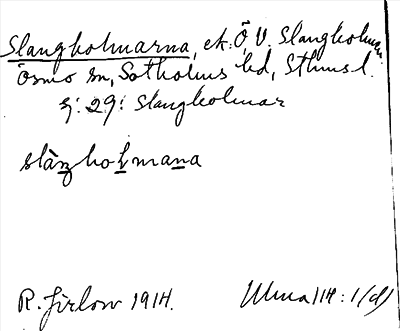 Slangholmarna, ek. Ö V. Slangholmen
Ösmo sn, Sotholms hd, Sthms l.
Ej: 29: Slangholmar
slàŋholmana
R. Jirlow 1914.
1/(d)